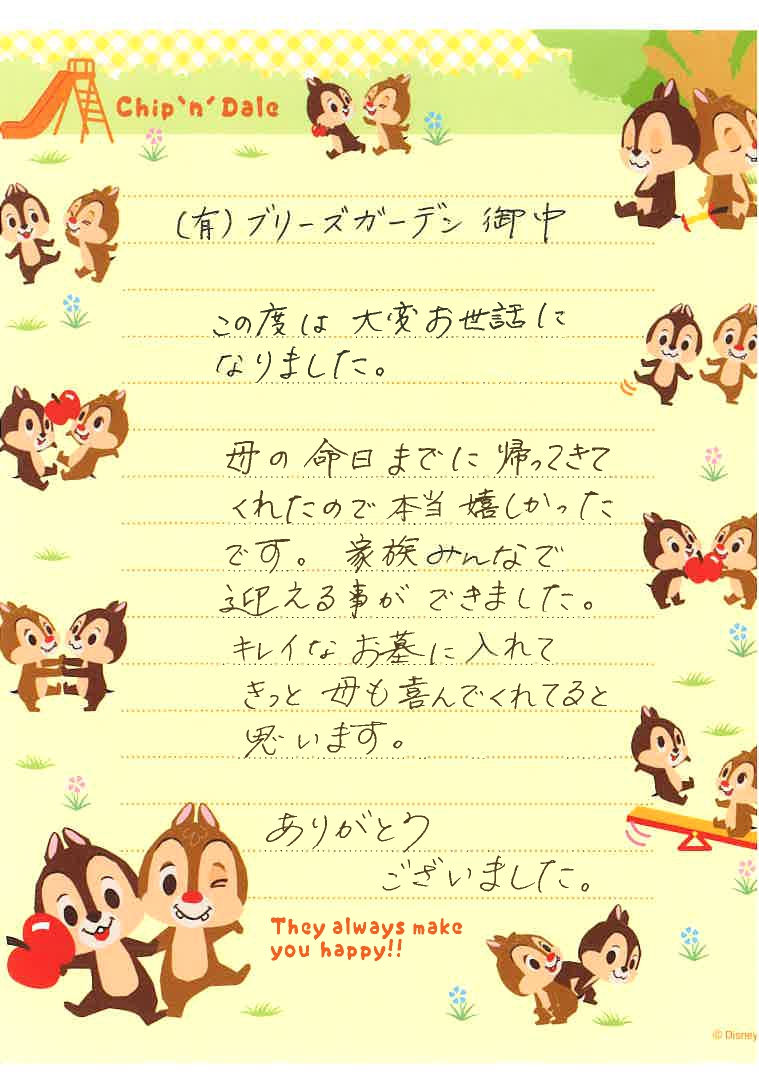 Chip'n'Dale
(有)ブリーズガーデン 御中
この度は 大変お世話に
なりました。
母の 命日までに 帰ってきて
くれたので 本当 嬉しかった
です。 家族みんなで
迎える事が できました。
キレイな お墓に 入れて
きっと 母も 喜んでくれてると
思います。
ありがとう
ございました。
They always make
you happy!!
© Disney